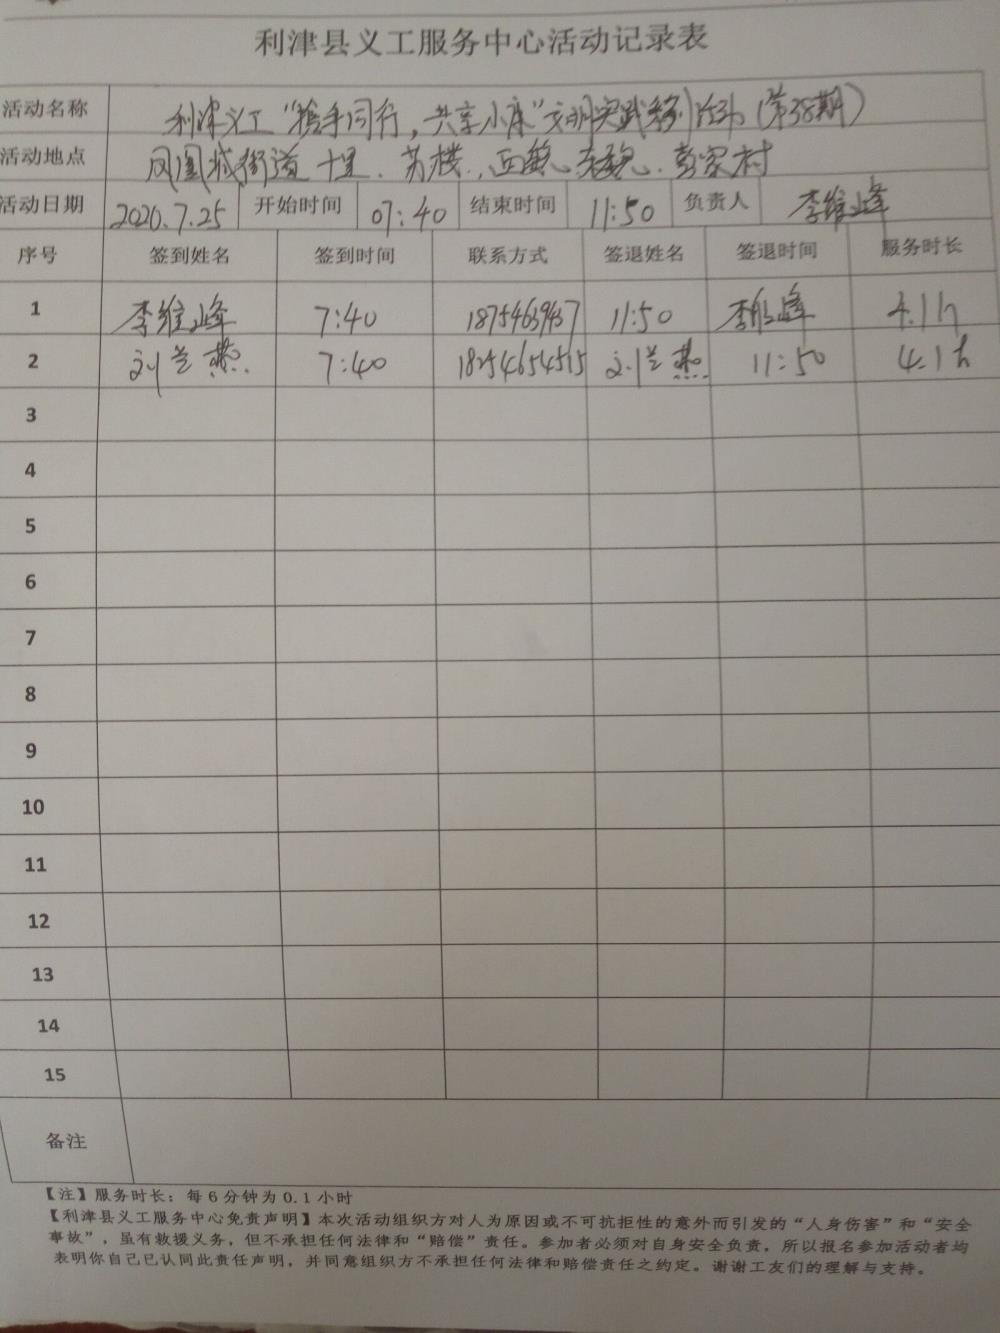 利津县义工服务中心活动记录表
活动名称 利津义工“携手同行，共享小康”文明实践系列活动（第38期）
活动地点 凤凰城街道十里、苏楼、
活动日期 2020.7.25 开始时间 07:40 结束时间 11:50 负责人 李维峰
序号 签到姓名 签到时间 联系方式 签退姓名 签退时间 服务时长
1 李维峰 7:40 11:50 李维峰 4.1h
2 刘兰燕 7:40 18254654515 刘兰燕 11:50 4.1h
3
4
5
6
7
8
9
10
11
12
13
14
15
备注
【注】服务时长：每6分钟为0.1小时
【利津县义工服务中心免责声明】本次活动组织方对人为原因或不可抗拒性的意外而引发的“人身伤害”和“安全
事故”，虽有救援义务，但不承担任何法律和“赔偿”责任。参加者必须对自身安全负责，所以报名参加活动者均
表明你自己已认同此责任声明，并同意组织方不承担任何法律和赔偿责任之约定。谢谢工友们的理解与支持。